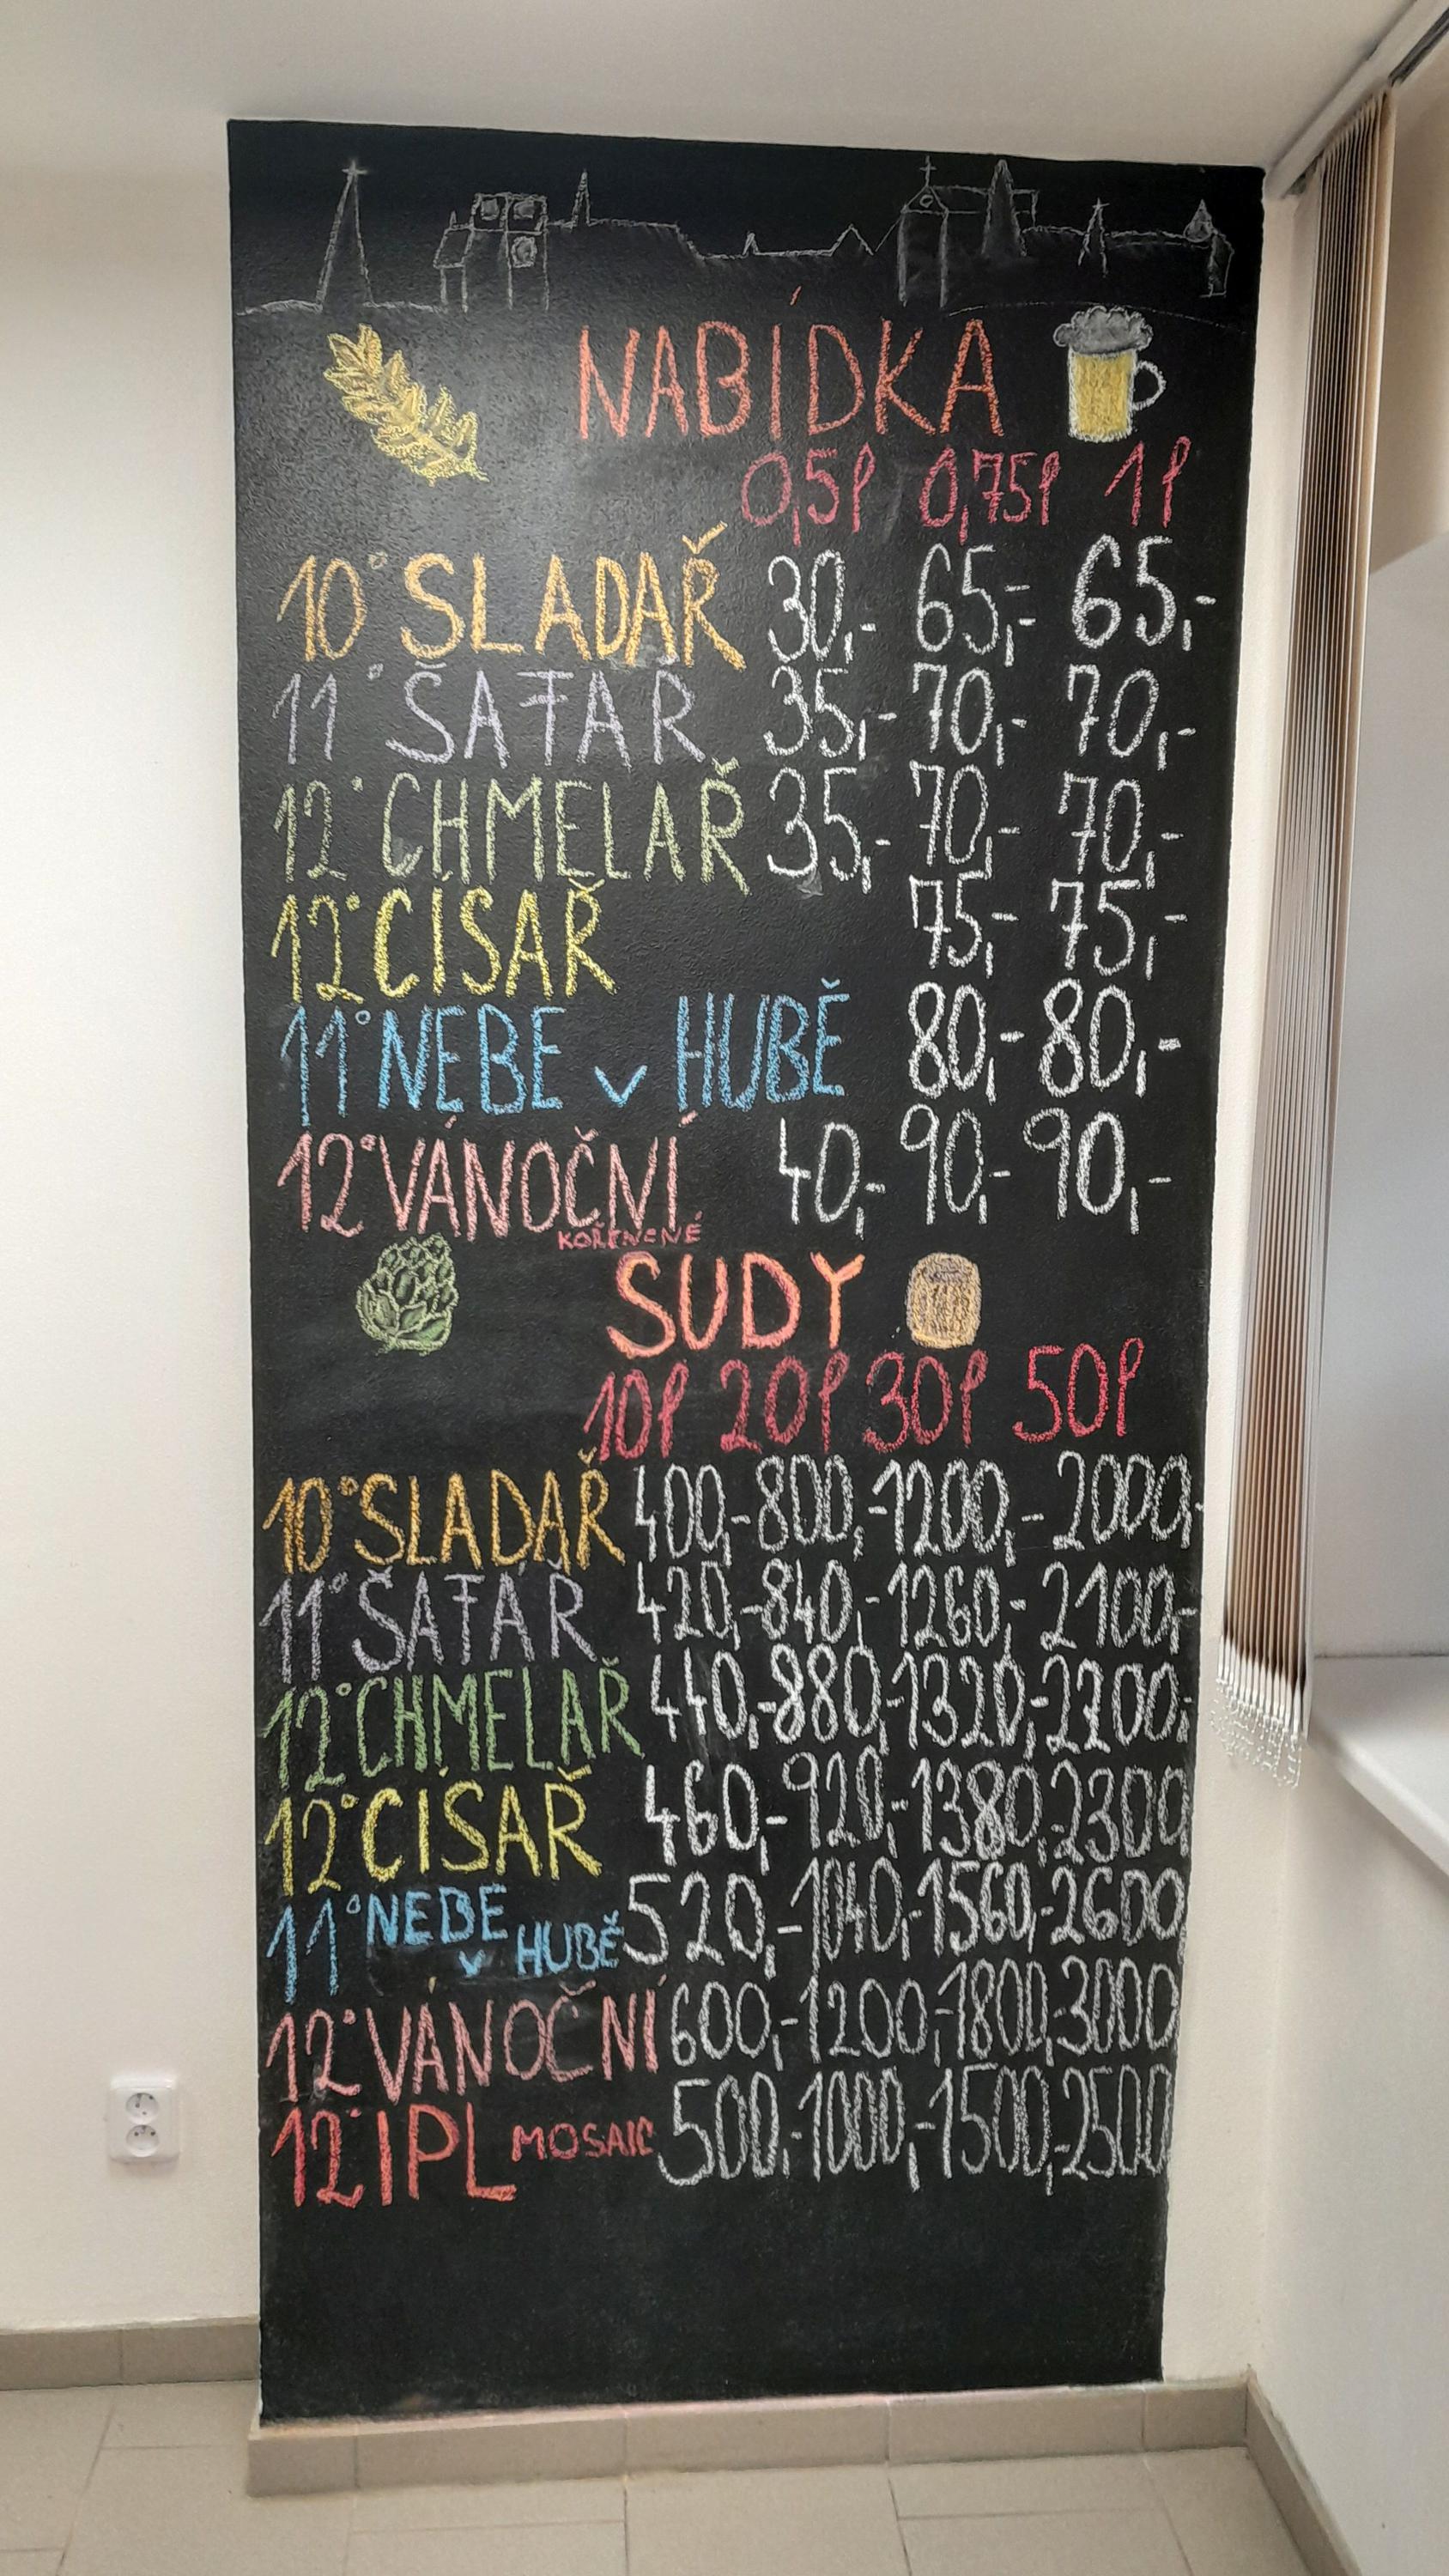 NABÍDKA
0,5l 0,75l 1l
10° SLADAŘ 30,- 65,- 65,-
11° ŠAFÁŘ 35,- 70,- 70,-
12° CHMELAŘ 35,- 70,- 70,-
12° CÍSAŘ 75,- 75,-
11° NEBE v HUBĚ 80,- 80,-
12° VÁNOČNÍ 40,- 90,- 90,-
KOŘENĚNÉ
SUDY
10l 20l 30l 50l
10° SLADAŘ 400,- 800,- 1200,- 2000,-
11° ŠAFÁŘ 420,- 840,- 1260,- 2100,-
12° CHMELAŘ 440,- 880,- 1320,- 2200,-
12° CÍSAŘ 460,- 920,- 1380,- 2300
11° NEBE v HUBĚ 520,- 1040,- 1560,- 2600
12° VÁNOČNÍ 600,- 1200,- 1800,- 3000
12° IPL MOSAIC 500,- 1000,- 1500,- 2500